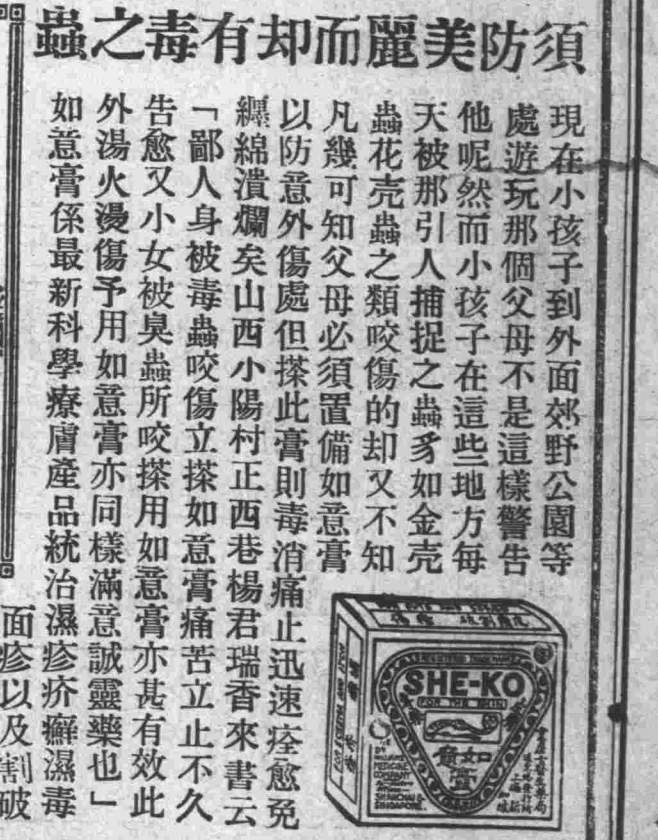 須防美麗而却有毒之蟲
現在小孩子到外面郊野公園等
處遊玩那個父母不是這樣警告
他呢然而小孩子在這些地方每
天被那引人捕捉之蟲豸如金壳
蟲花壳蟲之類咬傷的却又不知
凡幾可知父母必須置備如意膏
以防意外傷處但搽此膏則毒消痛止迅速痊愈免
纏綿潰爛矣山西小陽村正西巷楊君瑞香來書云
「鄙人身被毒蟲咬傷立搽如意膏痛苦立止不久
告愈又小女被臭蟲所咬搽用如意膏亦甚有效此
外湯火燙傷予用如意膏亦同樣滿意誠靈藥也」
如意膏係最新科學療膚產品統治濕疹疥癬濕毒
面疹以及割破
SHE-KO
FOR THE SKIN
如意膏
MEDICINE
COMPANY
SHANGHAI &
SINGAPORE.